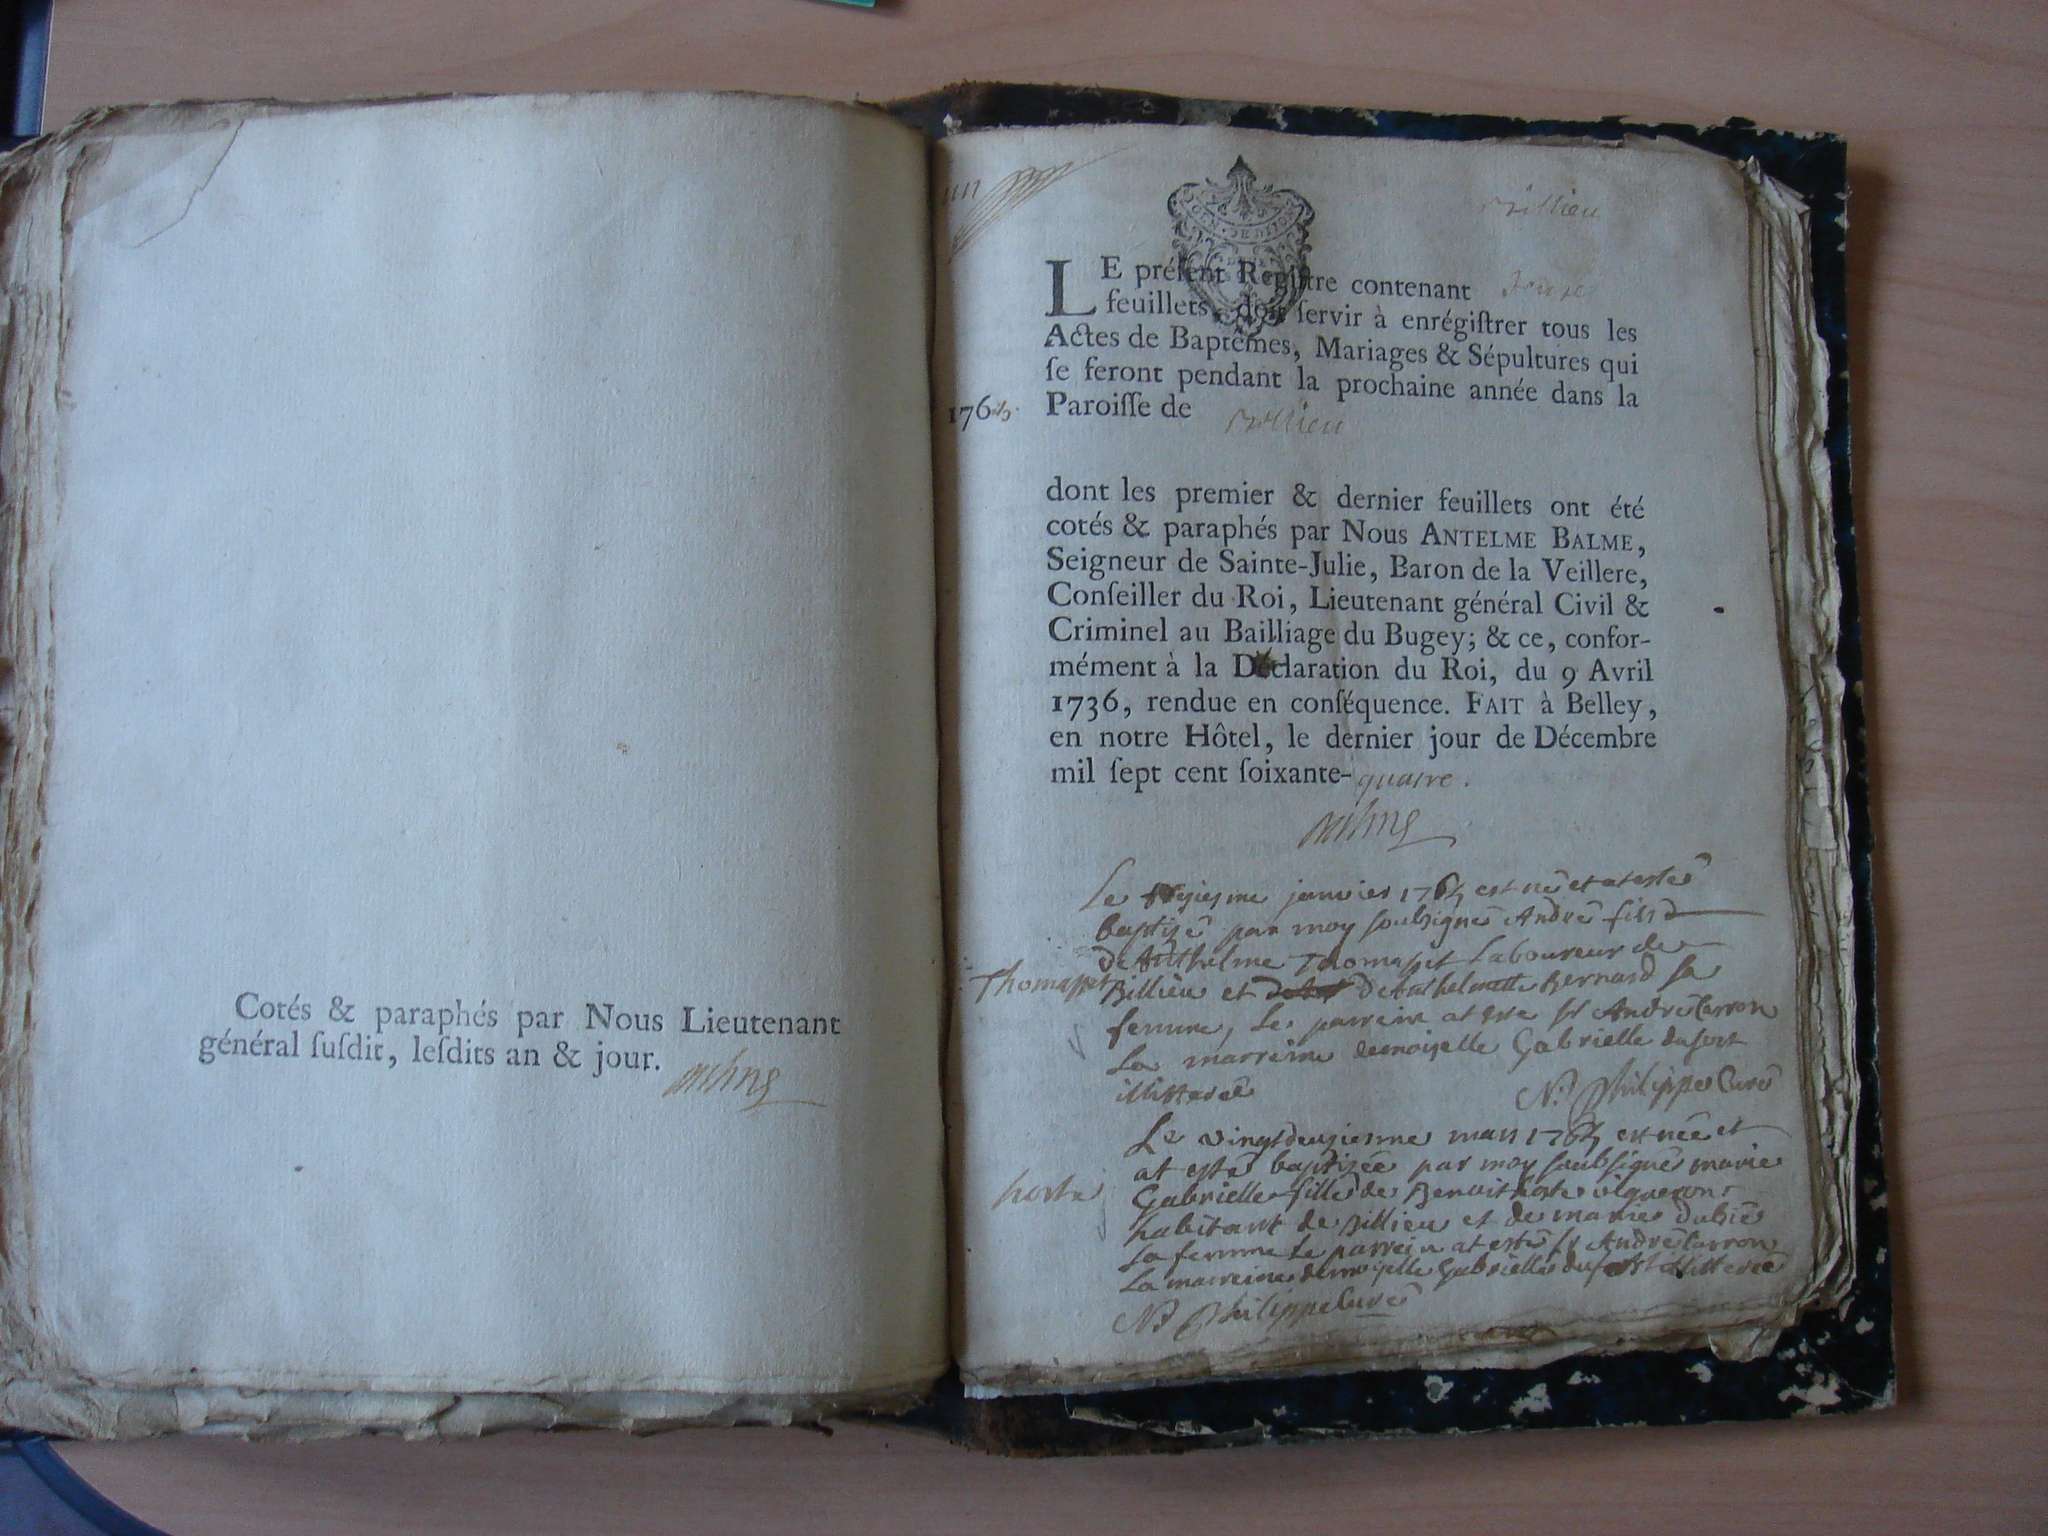 Cotés & paraphés par Nous Lieutenant
général ſuſdit, leſdits an & jour.
un
Billieu
LE préſent Regiſtre contenant
feuillets, doit ſervir à enrégiſtrer tous les
Actes de Baptêmes, Mariages & Sépultures qui
ſe feront pendant la prochaine année dans la
1765. Paroiſſe de Billieu
dont les premier & dernier feuillets ont été
cotés & paraphés par Nous ANTELME BALME,
Seigneur de Sainte-Julie, Baron de la Veillere,
Conſeiller du Roi, Lieutenant général Civil &
Criminel au Bailliage du Bugey; & ce, confor-
mément à la Déclaration du Roi, du 9 Avril
1736, rendue en conſéquence. FAIT à Belley,
en notre Hôtel, le dernier jour de Décembre
mil ſept cent ſoixante-quatre.
Le janvier 1765 est né et at esté
baptizé par moy soubsigné André fils
de Anthelme Thomasset Laboureur de
Thomasset
Billieu et de Anthelmette Bernard sa
femme, Le parrein at este sr André Carron
La marreine demoiselle Gabrielle dufort
illitterée
N. Philippe Curé
Le vingtdeuziesme mars 1765 est née et
at esté baptizée par moy soubsigné marie
horte
Gabrielle fille de Benoit horte vigneron
habitant de Billieu et de marie
sa femme Le parrein at esté sr André Carron
La marreine demoiselle Gabrielle dufort illitterée
N. Philippe Curé